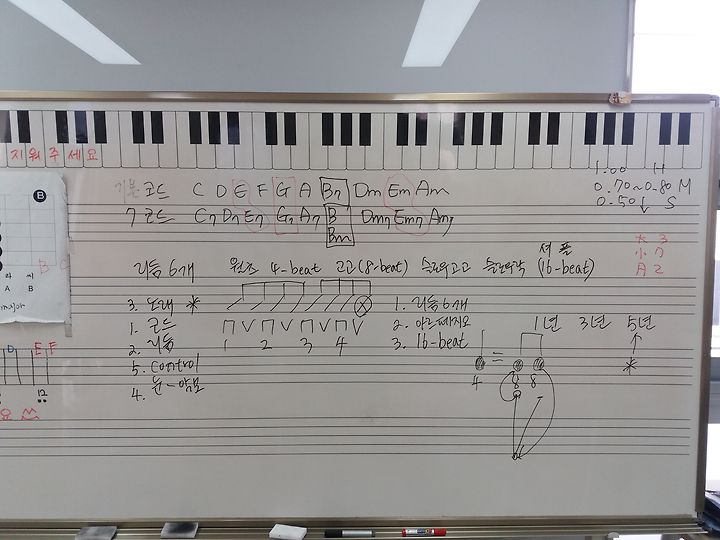 지워주세요
B
기본 코드 C D E F G A B7 Dm Em Am
7 코드 C7 D7 E7 G7 A7 B Dm7 Em7 Am7
Bm
1.00 H
0.70~0.80 M
0.50↓ S
大 3
小 7
A B
major
B C
리듬 6개 왈츠 4-beat 고고(8-beat) 슬로우고고 슬로우락 셔플
(16-beat)
3. 노래 *
1. 코드
2. 리듬
5. control
4. 눈-악보
1 2 3 4
1. 리듬 6개
2. 아르페지오
3. 16-beat
1년 3년 5년
*
4 = 8 8
D E F
12
요